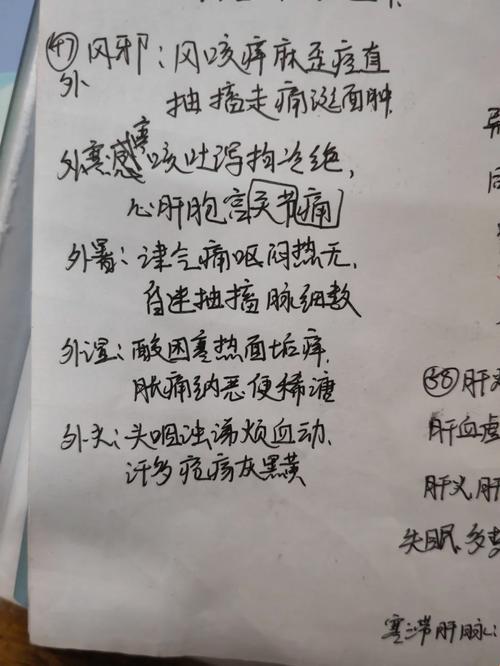 ㊼风邪：风咳痒麻歪痉直
外 抽搐走痛涎面肿
外寒感寒咳吐泻拘冷绝，
心肝胞宫关节痛
外暑：津气痛呕闷热无，
昏迷抽搐脉细数
外湿：酸困寒热面垢痒，
肽痛纳恶便稀溏
外火：头咽浊涕烦血动，
汗多疮疡灰黑黄
㊳肝
肝血虚
肝火肝
失眠多梦
寒滞肝脉：